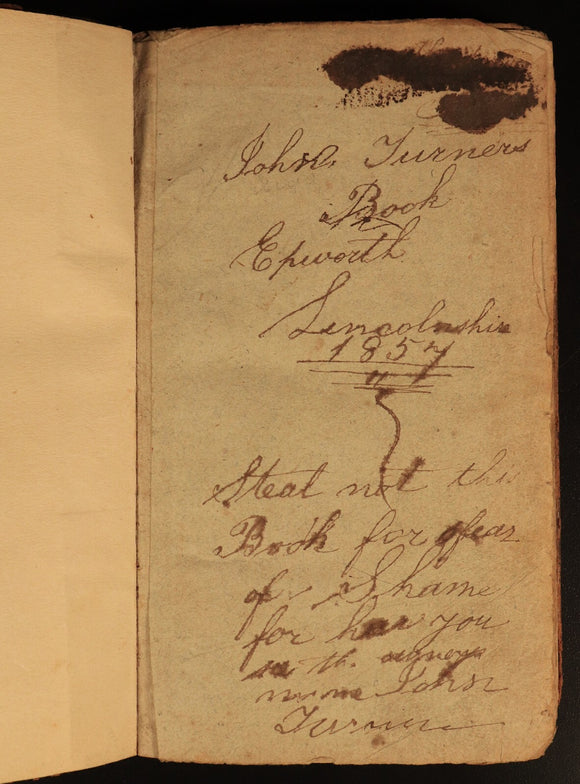 John Turners
Book
Epworth
Lincolnshire
1857
Steal not this
Book for fear
of Shame
for hear you
se th. owners
name John
Turner